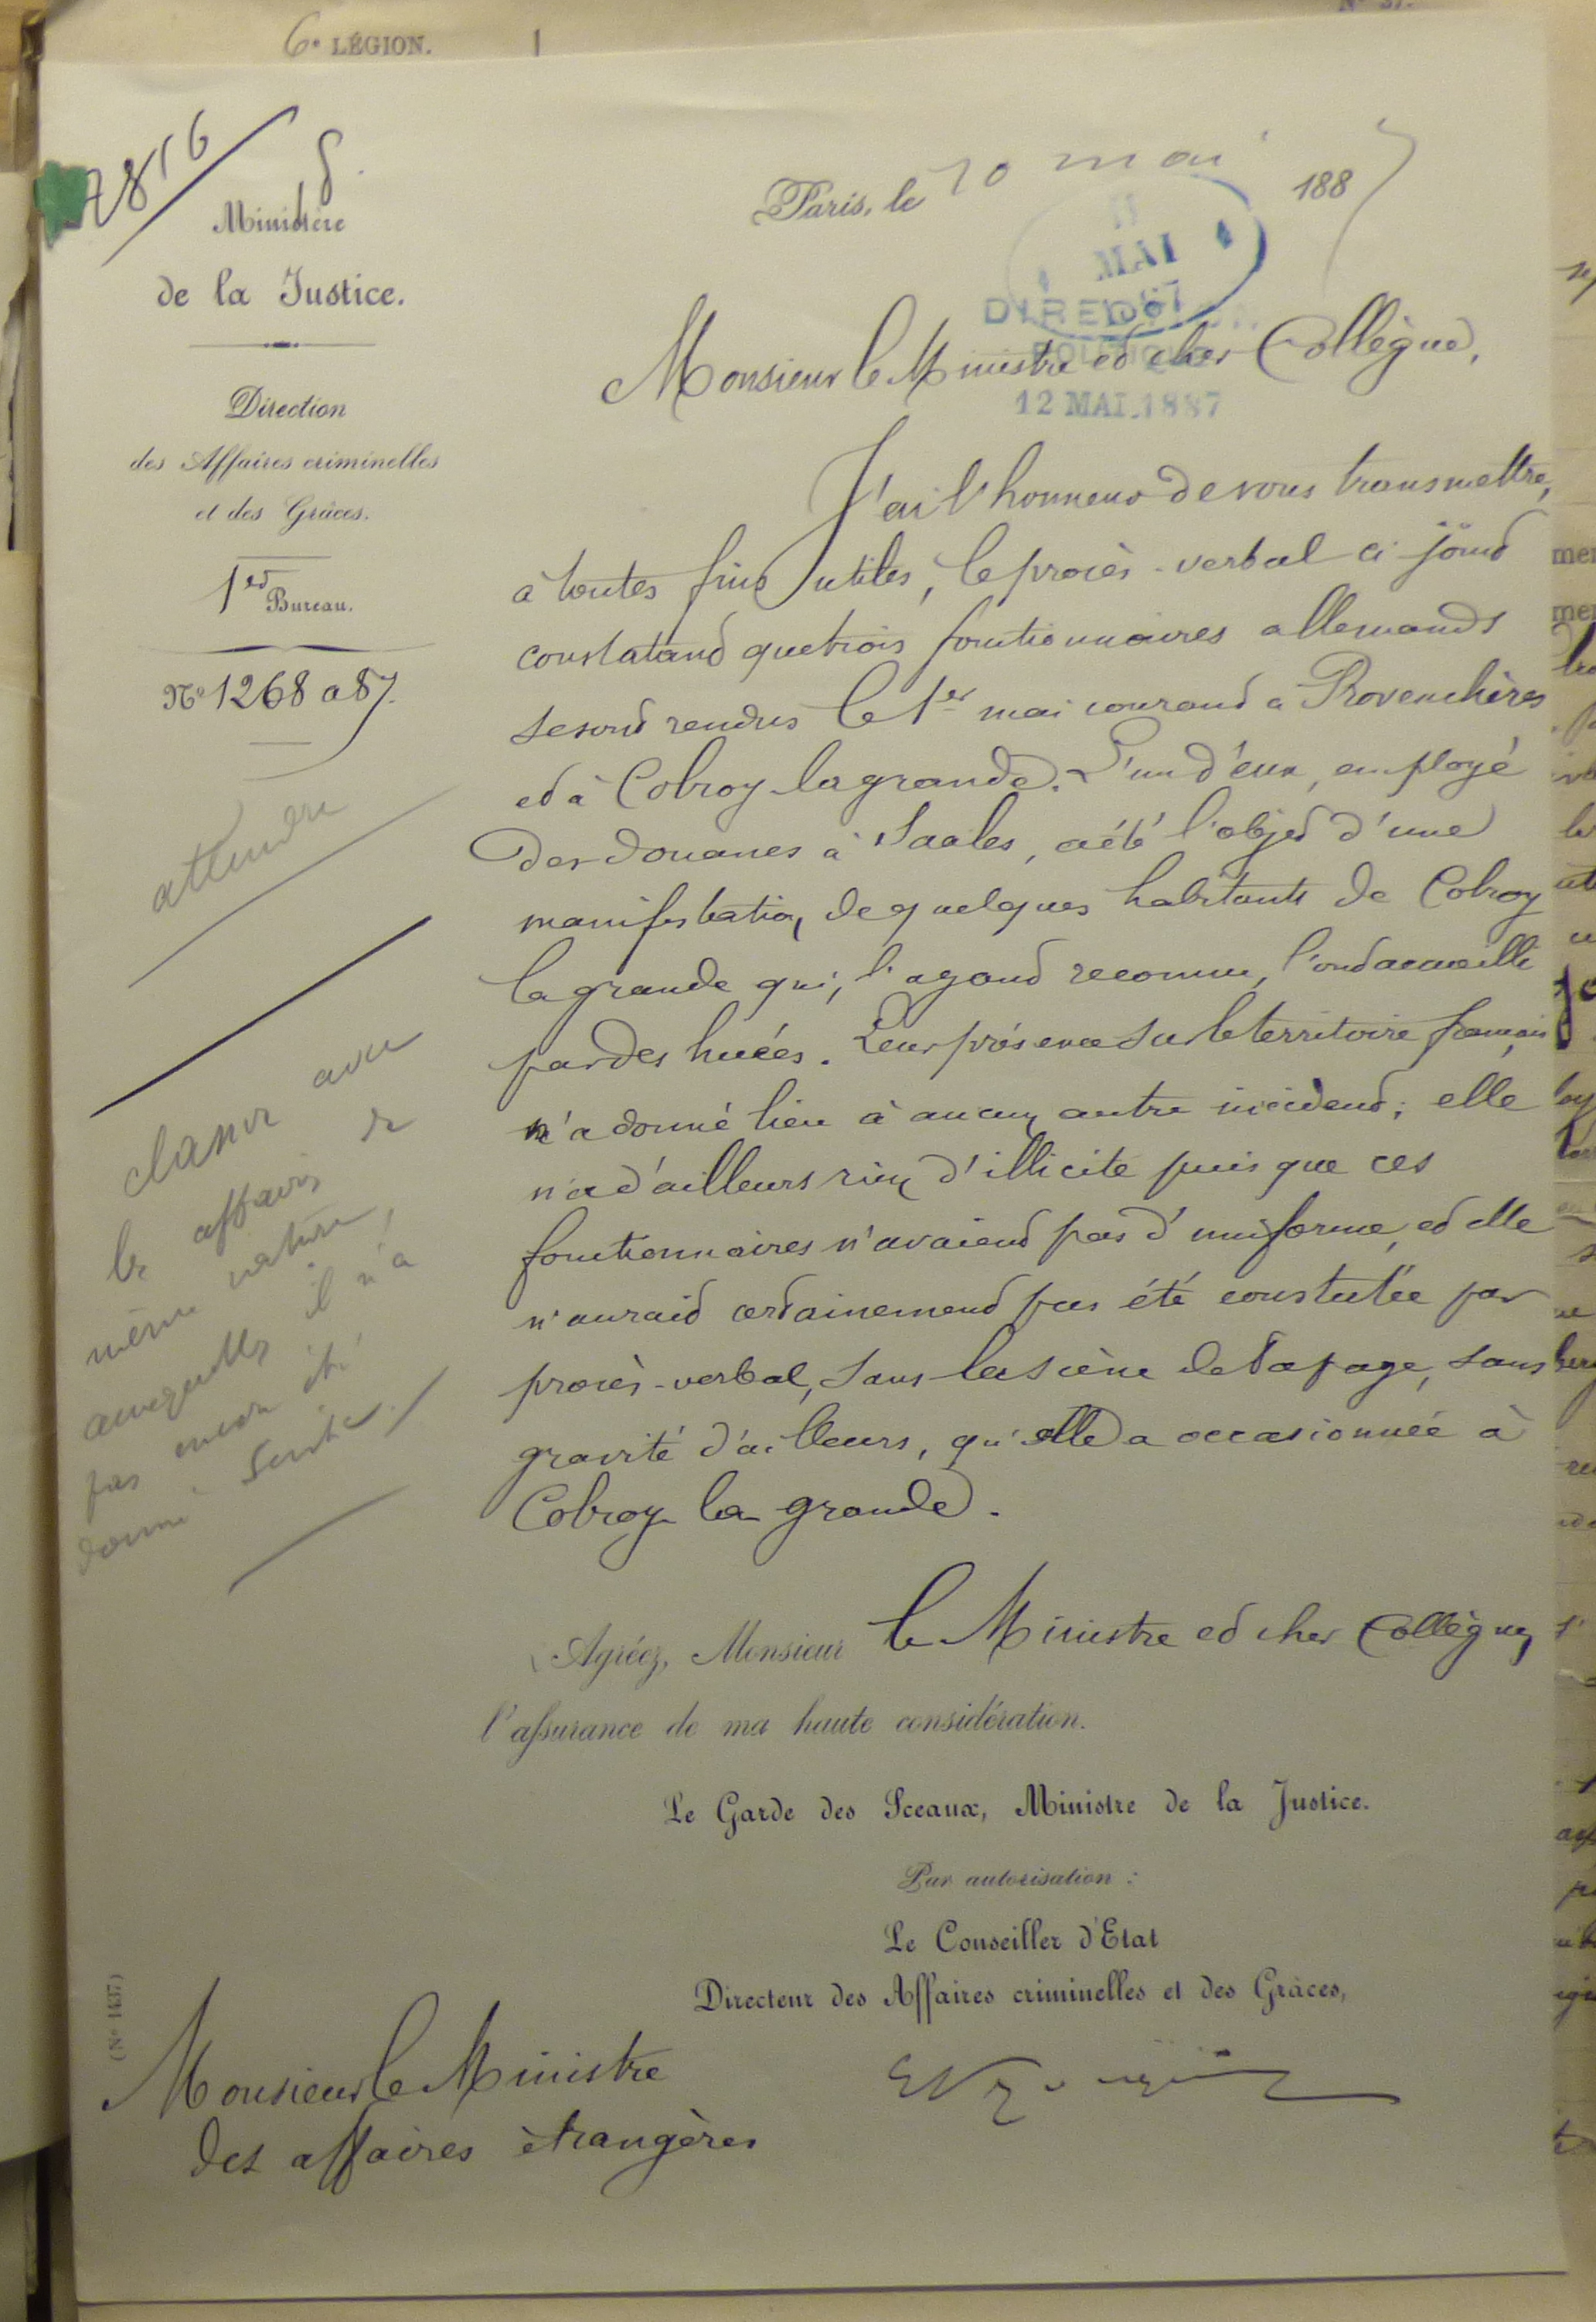 6e LÉGION.
7816
Ministère
de la Justice.
Direction
des Affaires criminelles
et des Grâces.
1er Bureau.
No 1268 a 87.
attendre
classer avec
les affaires de
même nature,
auxquelles il n'a
pas encore été
donné suite
Paris, le 10 mai 1887
11
MAI
1887
DIRECTION
POLITIQUE
12 MAI.1887
Monsieur le Ministre et cher Collègue,
J'ai l'honneur de vous transmettre,
à toutes fins utiles, le procès-verbal ci-joint
constatant que trois fonctionnaires allemands
se sont rendus le 1er mai courant à Provenchères
et à Colroy la grande. L'un d'eux, employé
des douanes à Saales, a été l'objet d'une
manifestation de quelques habitants de Colroy
la grande qui, l'ayant reconnu, l'ont accueilli
par des huées. Leur présence sur le territoire français
n'a donné lieu à aucun autre incident; elle
n'a d'ailleurs rien d'illicite puisque ces
fonctionnaires n'avaient pas d'uniforme, et elle
n'aurait certainement pas été constatée par
procès-verbal, sans la scène de tapage, sans
gravité d'ailleurs, qu'elle a occasionnée à
Colroy la grande.
Agréez, Monsieur le Ministre et cher Collègue,
l'assurance de ma haute considération.
Le Garde des Sceaux, Ministre de la Justice.
Par autorisation :
Le Conseiller d'Etat
Directeur des Affaires criminelles et des Grâces,
(No 1437)
Monsieur le Ministre
des affaires étrangères